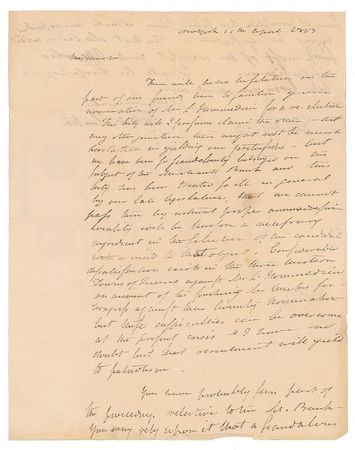 New York 11th April 1803
My dear sir
There will be no hesitation on the
part of our friends here to function your
nomination of Mr L'Hommedieu for a re election
The City will I presume claim the other, & at
any other juncture there might not be much
hesitation in yielding our pretensions. but
we have been so scandalously belonged on the
subject of the Merchants Bank and this
City has been treated so ill in general
by our late legislature, that we cannot
pass them by without proper animadversion
locality will be therefore a necessary
ingredient in the selection of the candidate
with a view to that object. Considerable
dissatisfaction exists in the three western
Towns of Queens against Mr L'Hommedieu
on account of his pushing Mr for
Congress against their nomination
but these difficulties can be overcome
at the present crisis & I have no
doubt but that resentment will yield
to patriotism.
You have probably seen part of
the proceedings relative to the M. Bank
You may rely upon it that a scandalous